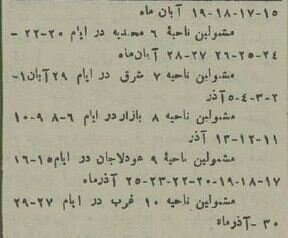 ۱۵-۱۷-۱۸-۱۹ آبان ماه
مشمولین ناحیهٔ ۶ محمدیه در ایام ۲۰-۲۲-
۲۴-۲۵-۲۶-۲۷-۲۸ آبان‌ماه
مشمولین ناحیه ۷ شرق در ایام ۲۹ آبان ۱-
۲-۳-۴-۵ آذر
مشمولین ناحیه ۸ بازار در ایام ۶-۸-۹-۱۰
۱۱-۱۲-۱۳ آذر
مشمولین ناحیهٔ ۹ عودلاجان در ایام ۱۵-۱۶
۱۷-۱۸-۱۹-۲۰-۲۲-۲۳-۲۵ آذرماه
مشمولین ناحیه ۱۰ غرب در ایام ۲۷-۲۹
۳۰-آذرماه